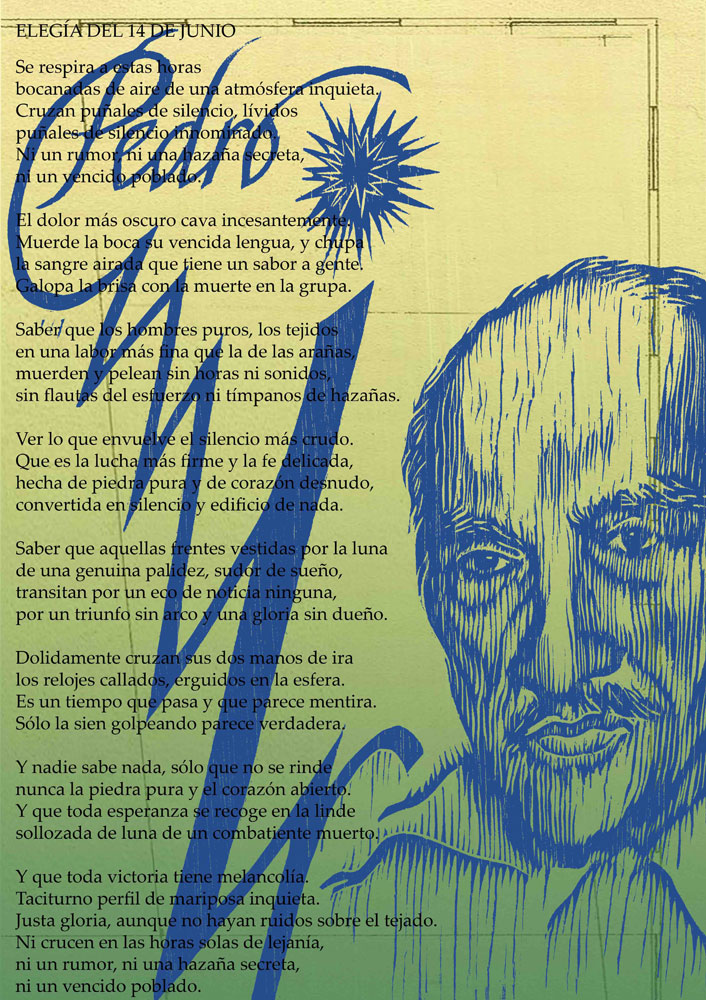 ELEGÍA DEL 14 DE JUNIO
Pedro Mir
Se respira a estas horas
bocanadas de aire de una atmósfera inquieta.
Cruzan puñales de silencio, lívidos
puñales de silencio innominado.
Ni un rumor, ni una hazaña secreta,
ni un vencido poblado.
El dolor más oscuro cava incesantemente.
Muerde la boca su vencida lengua, y chupa
la sangre airada que tiene un sabor a gente.
Galopa la brisa con la muerte en la grupa.
Saber que los hombres puros, los tejidos
en una labor más fina que la de las arañas,
muerden y pelean sin horas ni sonidos,
sin flautas del esfuerzo ni tímpanos de hazañas.
Ver lo que envuelve el silencio más crudo.
Que es la lucha más firme y la fe delicada,
hecha de piedra pura y de corazón desnudo,
convertida en silencio y edificio de nada.
Saber que aquellas frentes vestidas por la luna
de una genuina palidez, sudor de sueño,
transitan por un eco de noticia ninguna,
por un triunfo sin arco y una gloria sin dueño.
Dolidamente cruzan sus dos manos de ira
los relojes callados, erguidos en la esfera.
Es un tiempo que pasa y que parece mentira.
Sólo la sien golpeando parece verdadera.
Y nadie sabe nada, sólo que no se rinde
nunca la piedra pura y el corazón abierto.
Y que toda esperanza se recoge en la linde
sollozada de luna de un combatiente muerto.
Y que toda victoria tiene melancolía.
Taciturno perfil de mariposa inquieta.
Justa gloria, aunque no hayan ruidos sobre el tejado.
Ni crucen en las horas solas de lejanía,
ni un rumor, ni una hazaña secreta,
ni un vencido poblado.